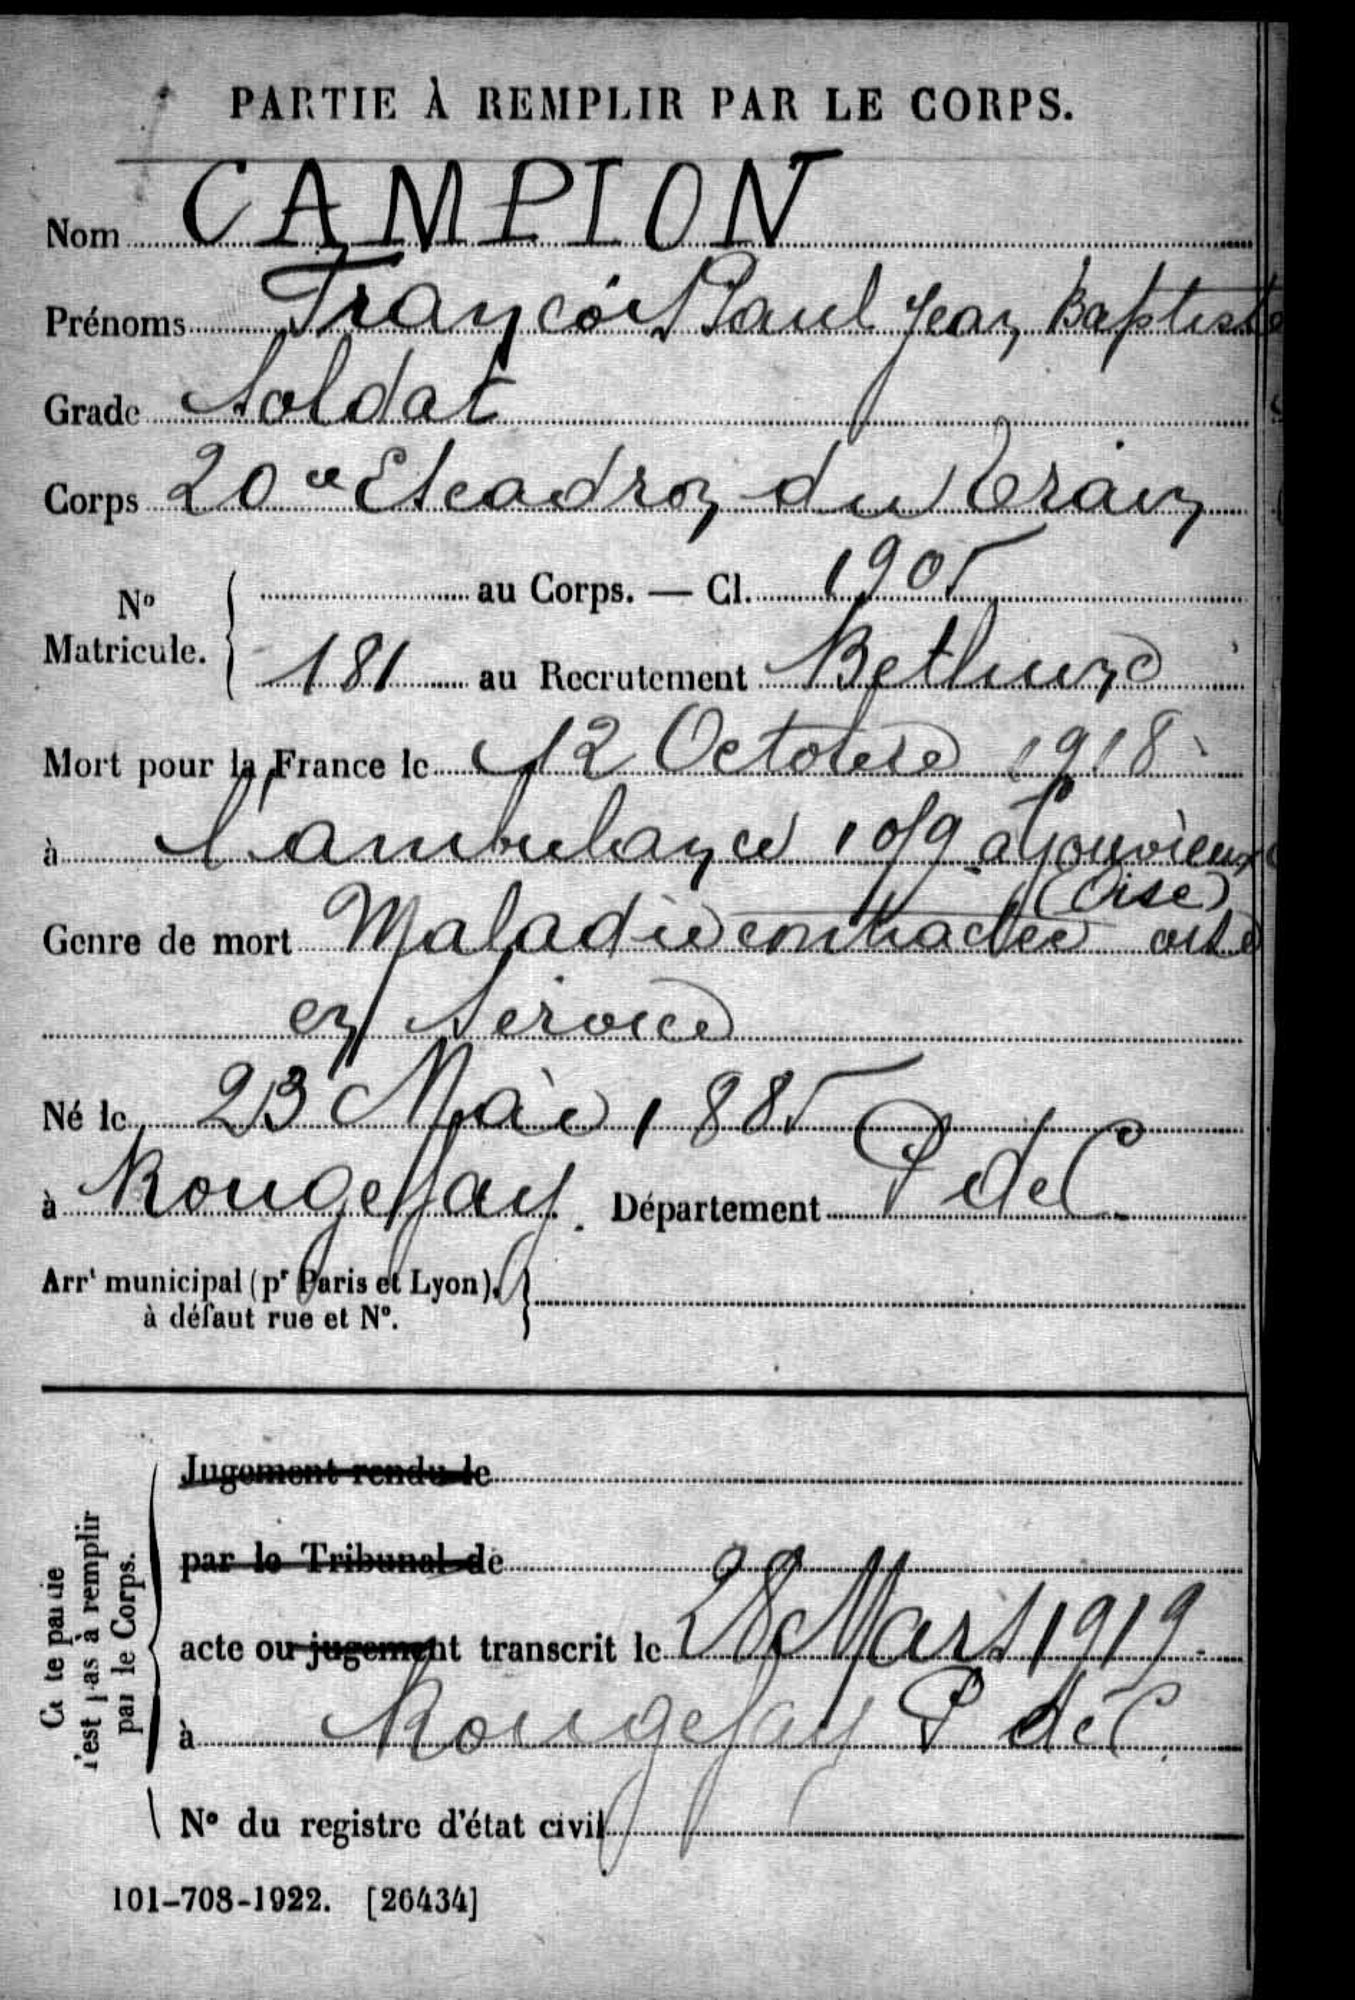 PARTIE À REMPLIR PAR LE CORPS.
Nom CAMPION
Prénoms François Paul Jean Baptiste
Grade Soldat
Corps 20e Escadron du Train
au Corps. — Cl. 1905
N° Matricule.
181 au Recrutement Bethune
Mort pour la France le 12 Octobre 1918
à l'ambulance 10/9 à Gouvieux
(Oise)
Genre de mort Maladie contractée
en Service
Né le 23 Mai 1885
à Rougefay. Département P de C.
Arrt municipal (pr Paris et Lyon),
à défaut rue et N°.
Cette partie
n'est pas à remplir
par le Corps.
Jugement rendu le
par le Tribunal de
acte ou jugement transcrit le 28 Mars 1919.
à Rougefay P de C.
N° du registre d'état civil
101-708-1922. [26434]